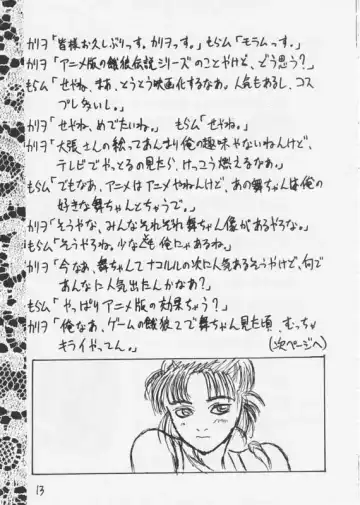 カリヲ「皆様お久しぶりっす。カリヲっす。」もらム「モラムっす。」
カリヲ「アニメ版の餓狼伝説シリーズのことやけど、どう思う?」
もらム「せやね、まあ、とうとう映画化するなあ。人気もあるし、コス
プレ多いし。」
カリヲ「せやね、めでたいね。」 もらム「せやね。」
カリヲ「大張さんの絵ってあんまり俺の趣味やないねんけど、
テレビでやっとるの見たら、けっこう燃えるなあ。」
もらム「でもなあ、アニメはアニメやねんけど、あの舞ちゃんは俺の
好きな舞ちゃんとちゃうで。」
カリヲ「そうやな、みんなそれぞれ舞ちゃん像があるやろな。」
もらム「そうやろね。少なくとも俺にゃあるね。」
カリヲ「今なあ、舞ちゃんてナコルルの次に人気あるそうやけど、何で
あんなに人気出たんかなあ?」
もらム「やっぱりアニメ版の効果ちゃう?」
カリヲ「俺なあ、ゲームの餓狼2で舞ちゃん見た頃、むっちゃ
キライやってん。」
(次ページへ)
13